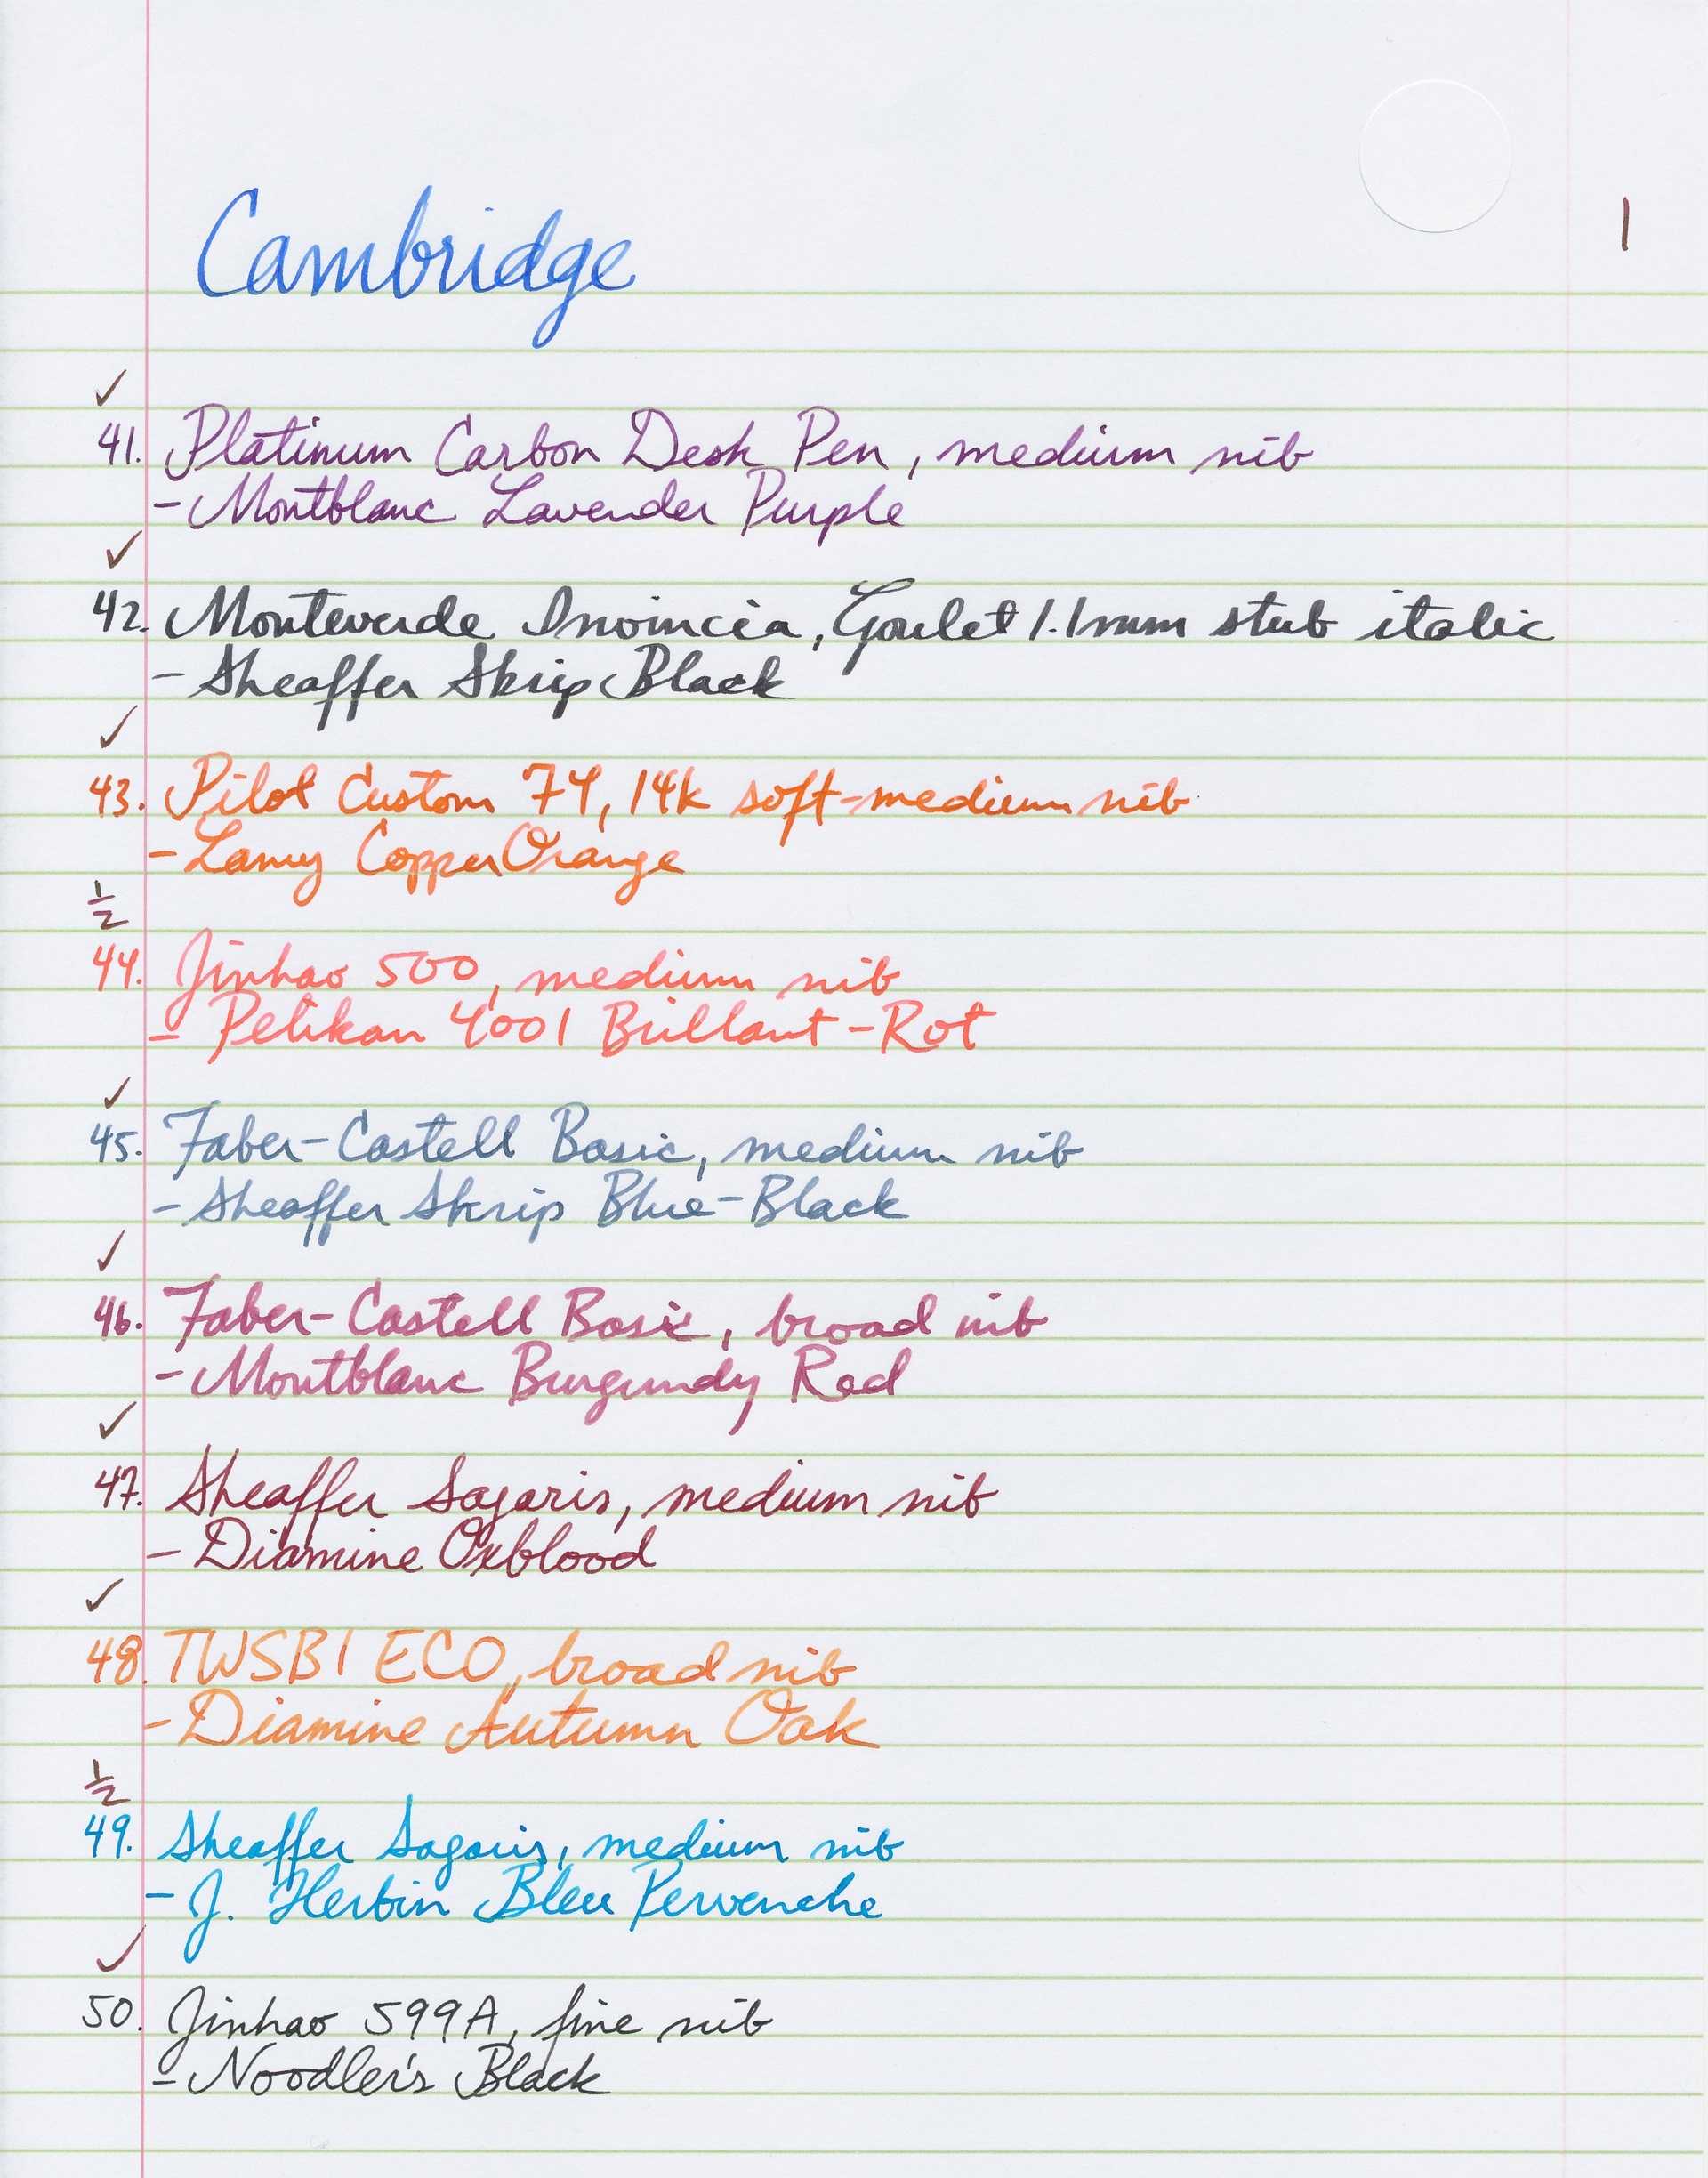 1
Cambridge
✓
41. Platinum Carbon Desk Pen, medium nib
- Montblanc Lavender Purple
✓
42. Monteverde Invincia, Goulet 1.1mm stub italic
- Sheaffer Skrip Black
✓
43. Pilot Custom 74, 14k soft-medium nib
- Lamy Copper Orange
1/2
44. Jinhao 500, medium nib
- Pelikan 4001 Brillant-Rot
✓
45. Faber-Castell Basic, medium nib
- Sheaffer Skrip Blue-Black
✓
46. Faber-Castell Basic, broad nib
- Montblanc Burgundy Red
✓
47. Sheaffer Sagaris, medium nib
- Diamine Oxblood
✓
48. TWSBI ECO, broad nib
- Diamine Autumn Oak
1/2
49. Sheaffer Sagaris, medium nib
- J. Herbin Bleu Pervenche
✓
50. Jinhao 599A, fine nib
- Noodler's Black